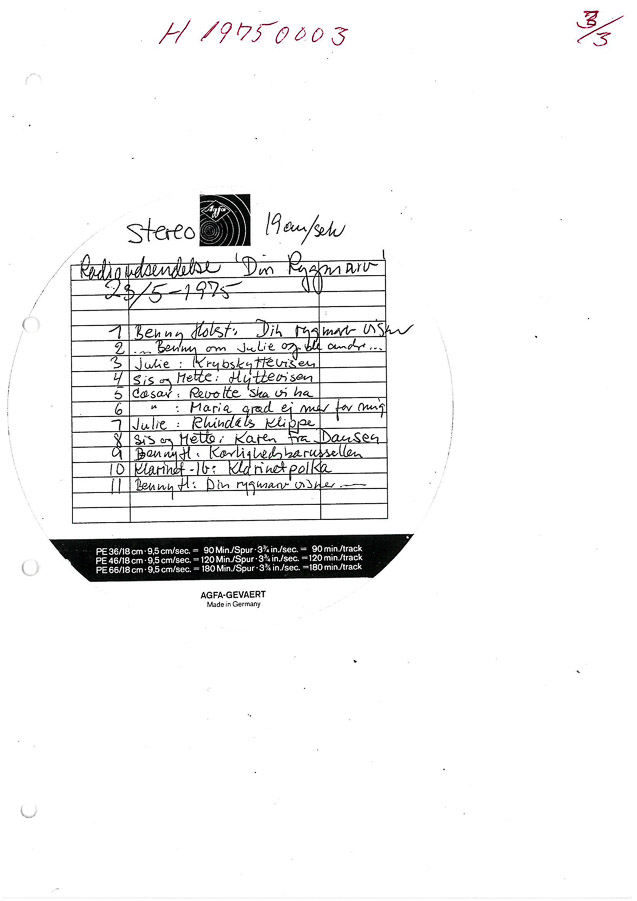 H 19750003
3/3
Agfa
Stereo 19 cm/sek
Radioudsendelse 'Din Rygmarv'
23/5-1975
1 Benny Holst: Din rygmarv visner
2 ... Benny om Julie og de andre...
3 Julie: Krybskyttevisen
4 Sis og Mette: Hyttevisen
5 Cæsar: Revolte ska vi ha
6 " : Maria græd ej mer for mig
7 Julie: Rhindals Klippe
8 Sis og Mette: Karen fra Dansen
9 Benny H: Kærlighedskarussellen
10 Klarinet-Ib: Klarinetpolka
11 Benny H: Din rygmarv visner
PE 36/18 cm · 9,5 cm/sec. = 90 Min./Spur · 3¾ in./sec. = 90 min./track
PE 46/18 cm · 9,5 cm/sec. = 120 Min./Spur · 3¾ in./sec. = 120 min./track
PE 66/18 cm · 9,5 cm/sec. = 180 Min./Spur · 3¾ in./sec. = 180 min./track
AGFA-GEVAERT
Made in Germany